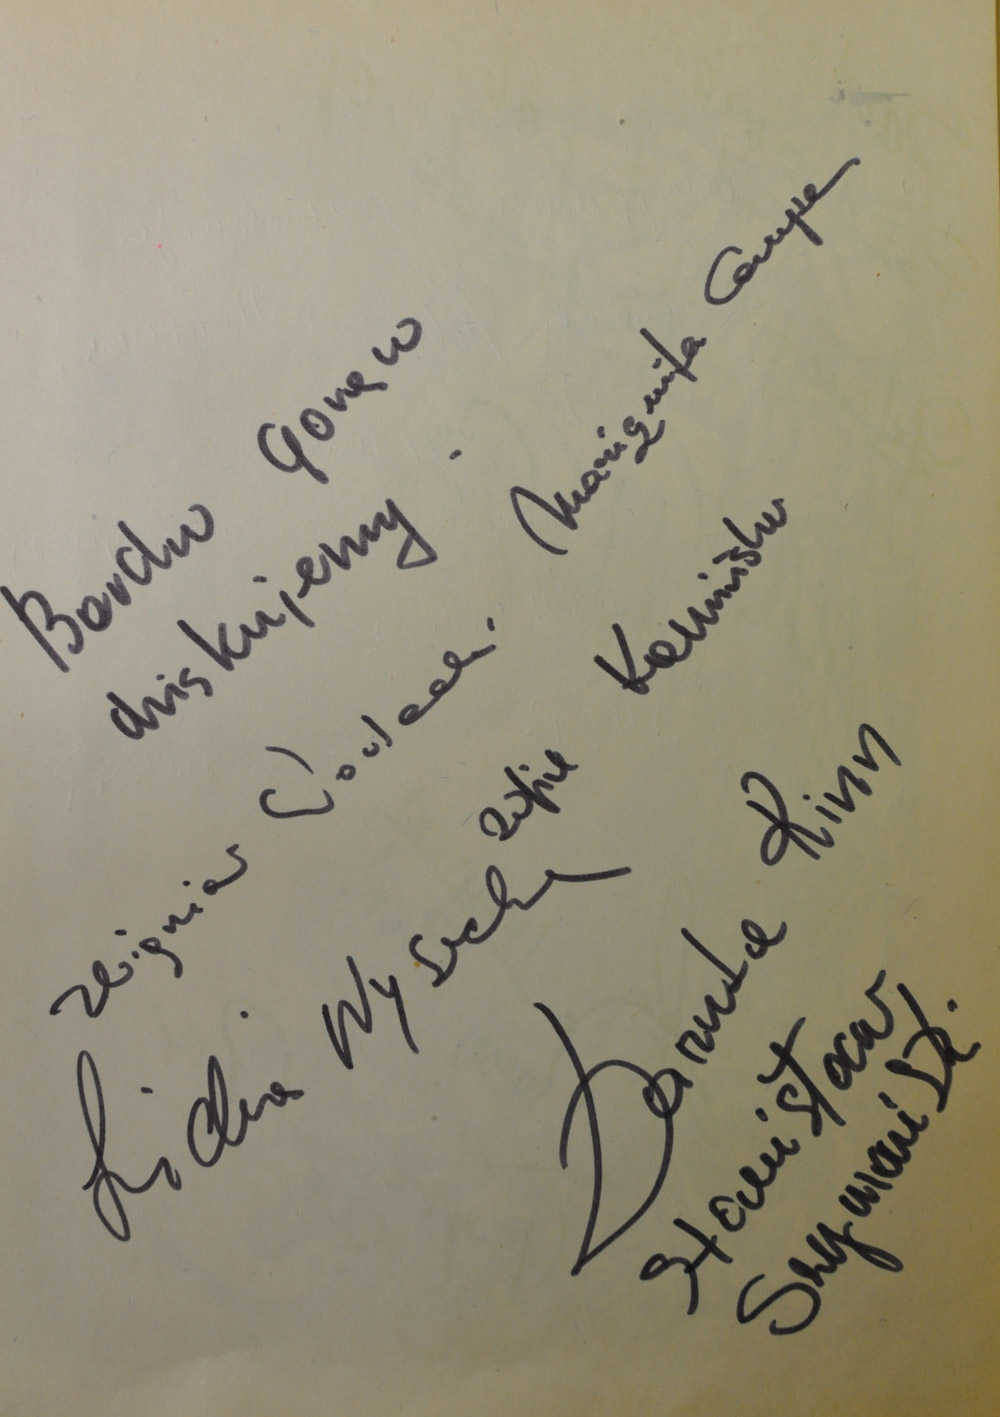 Bardzo gorąco
dziękujemy.
Zbigniew
Małgorzata
Lidia Wysocka
Zofia Kamińska
Danuta Rinn
Stanisław
Szymański.